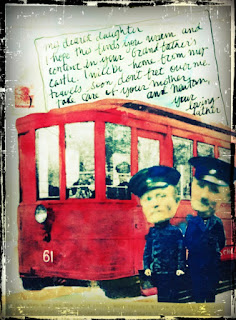 My dearest daughter
I hope this finds you warm and
content in your Grand father's
castle. I will be home from my
travels soon don't fret over me.
Take care of your mother
and
your
loving
father
61